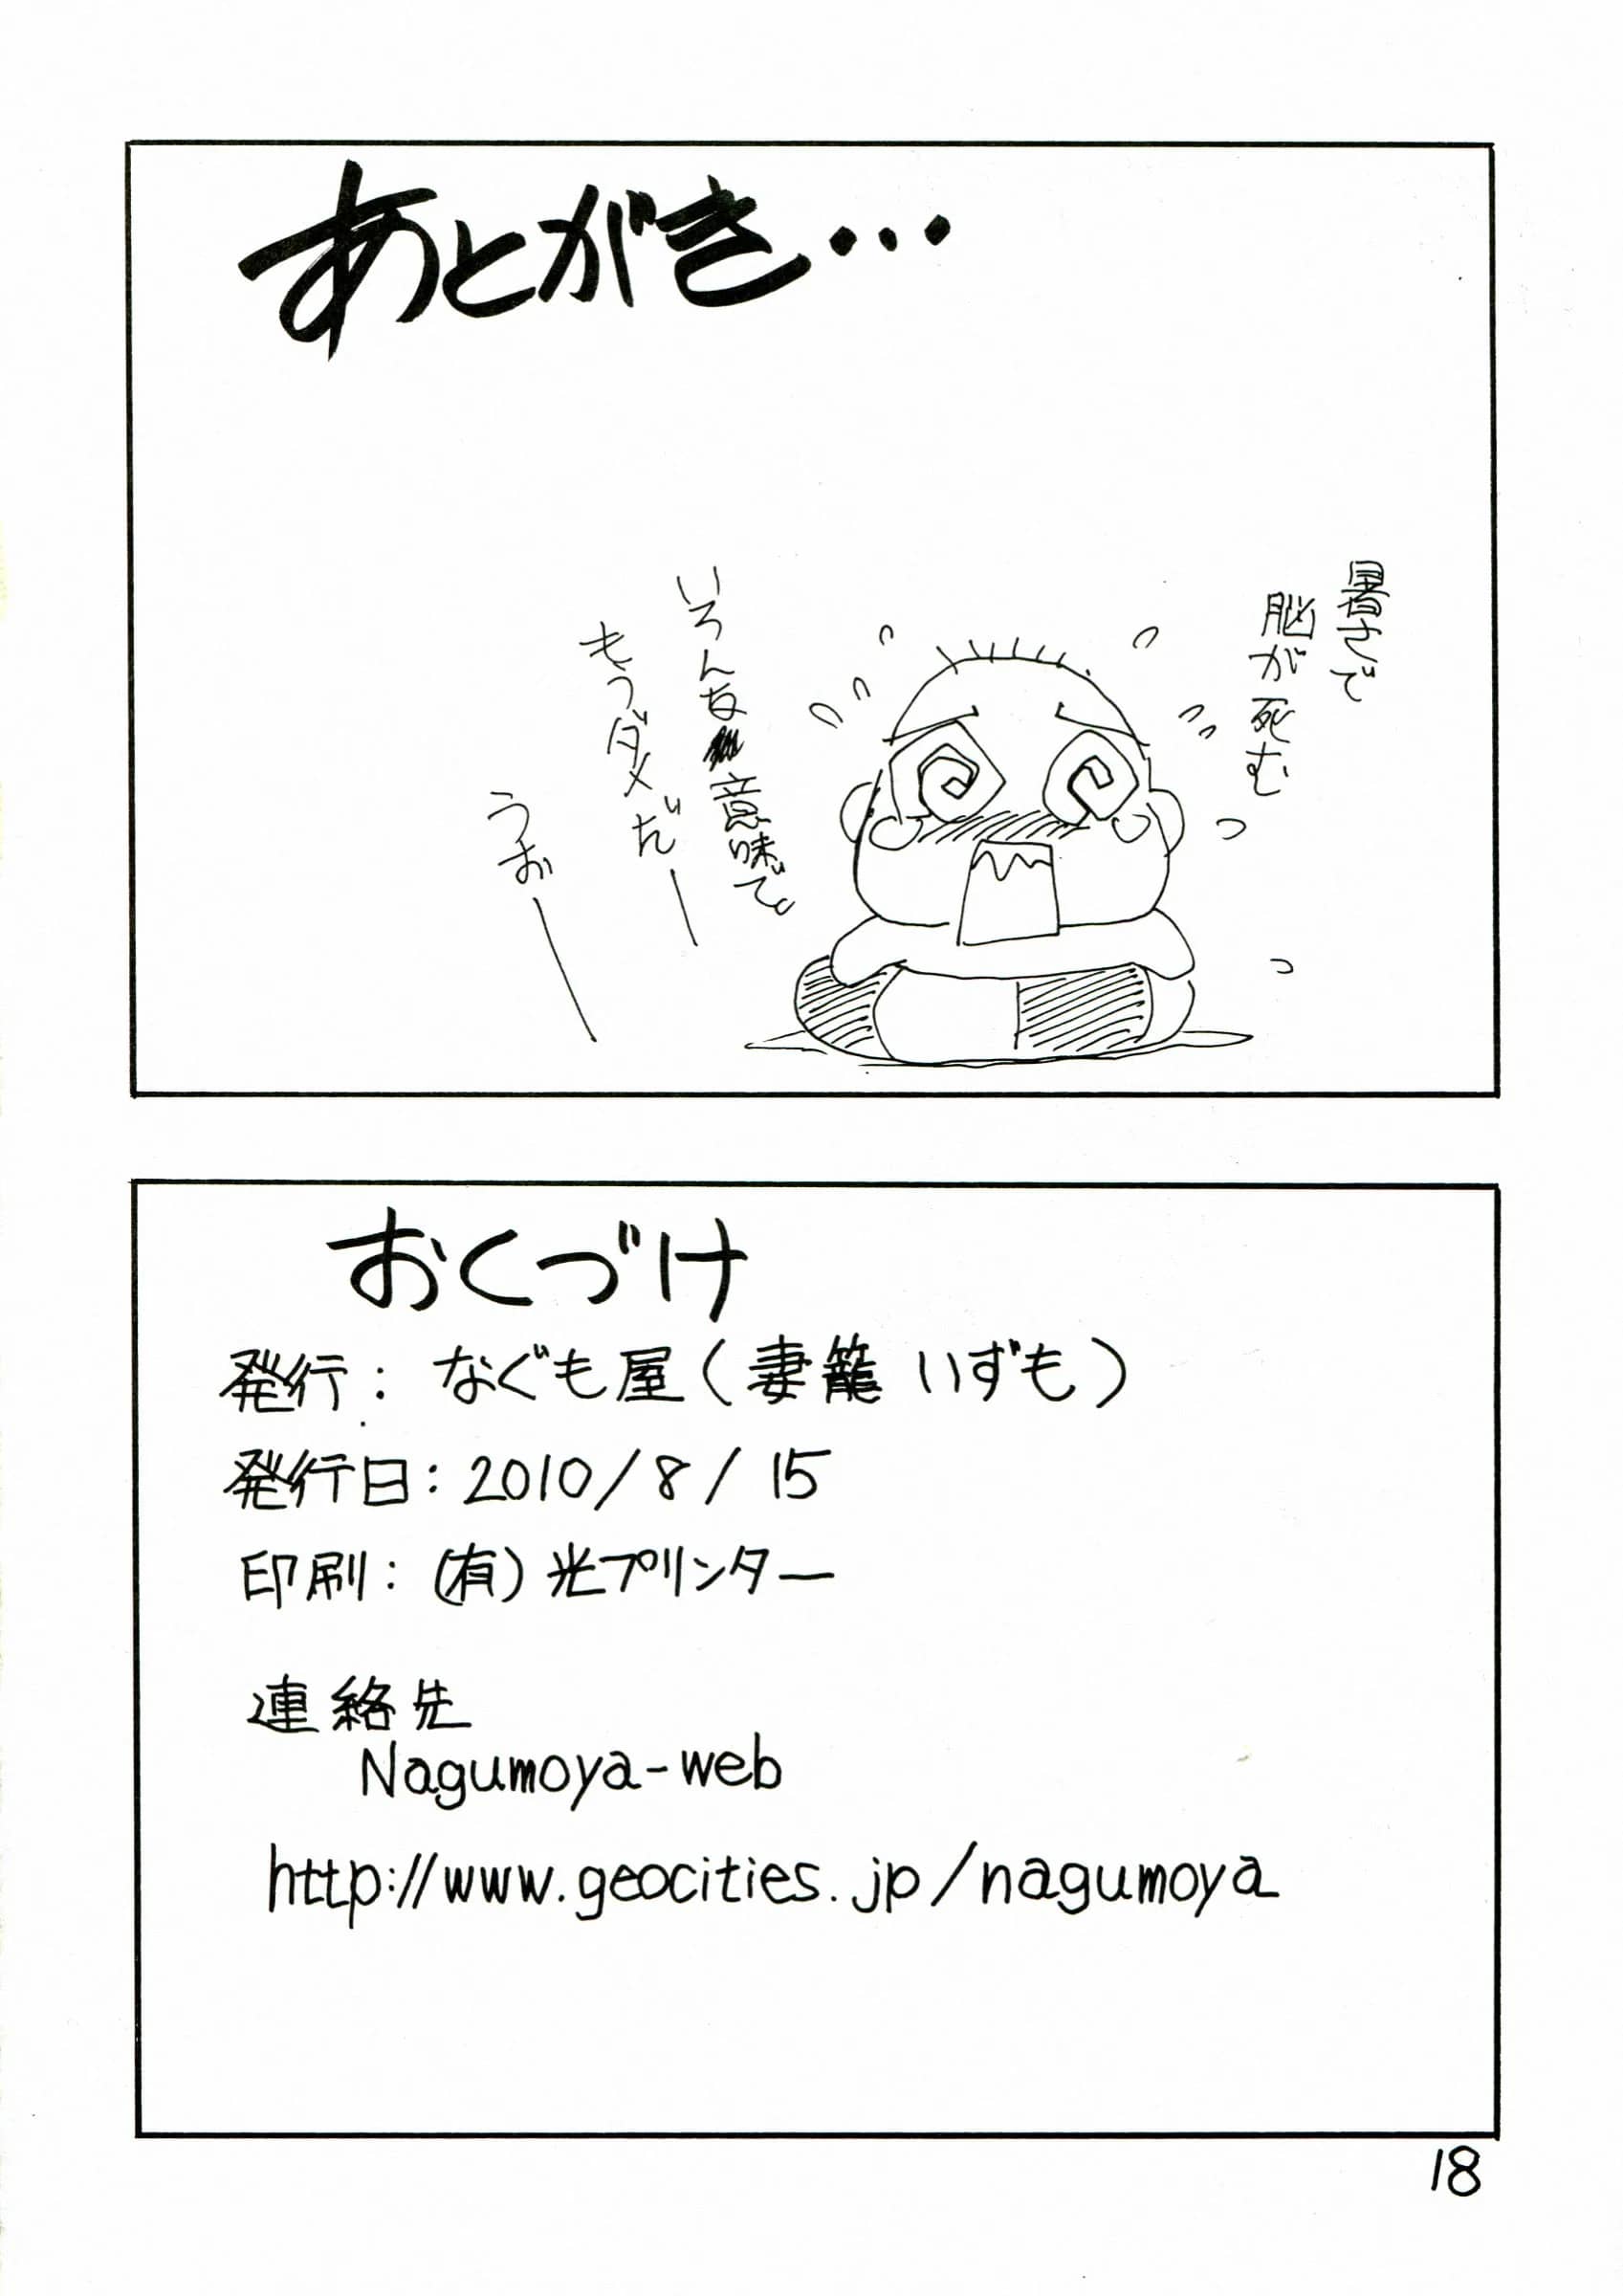 あとがき・・・
暑さで
脳が死む
いろんな意味で。
もうダメだー
うおー
おくづけ
発行：なぐも屋（妻籠 いずも）
発行日：2010/8/15
印刷：(有)光プリンター
連絡先
Nagumoya-web
http://www.geocities.jp/nagumoya
18